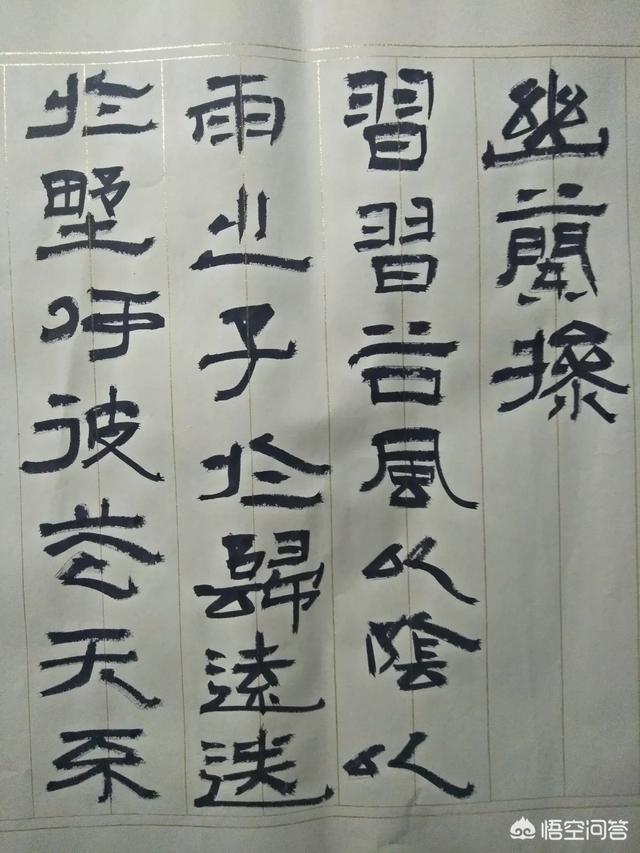 幽蘭操
習習谷風以陰以
雨之子於歸遠送
於野呼彼苍天不
悟空问答